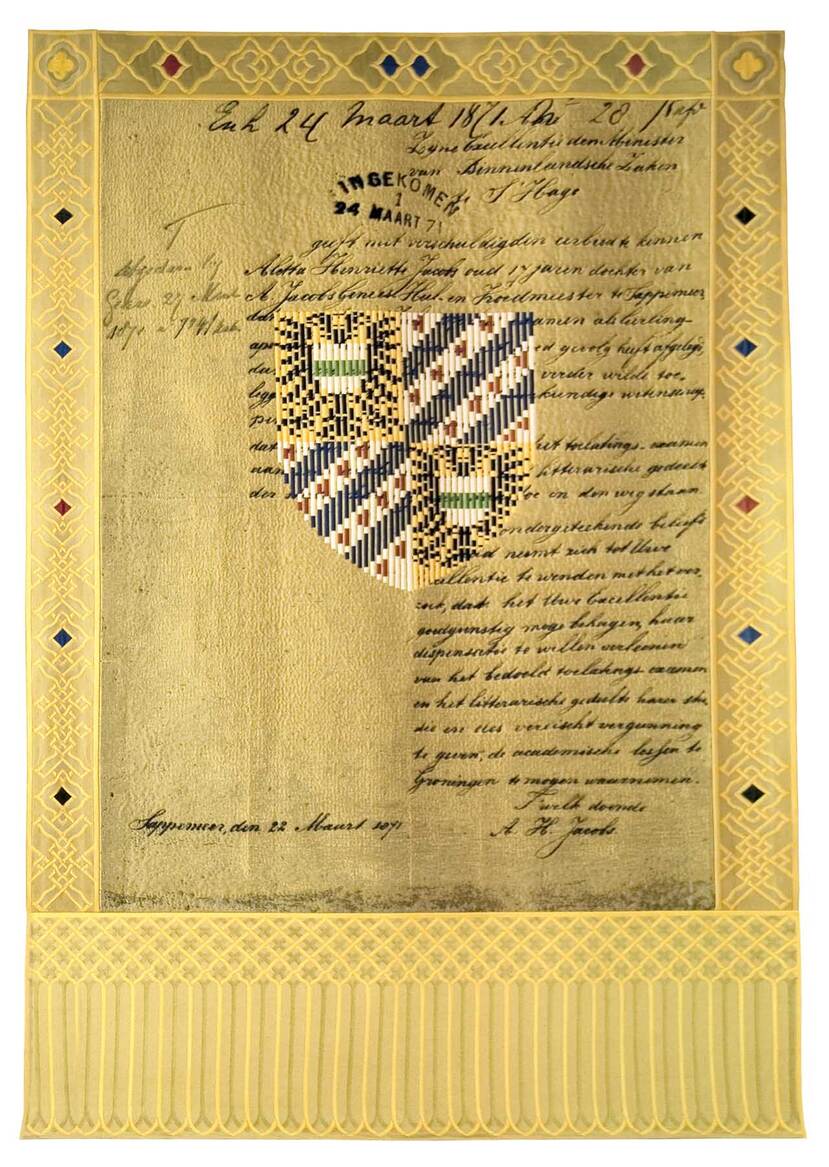 Exh 24 Maart 1871. No 28
Zyne Excellentie den Minister
van Binnenlandsche Zaken
te S'Hage
INGEKOMEN
1
24 MAART 71
geeft met verschuldigden eerbied te kennen
Afgedaan by
Aletta Henriette Jacobs oud 17 jaren dochter van
27 Maart
A. Jacobs Genees Heel- en Vroedmeester te Sappemeer,
1871 n 794/
dat amen als leerling
apo ed gevolg heeft afgelegd,
da verder wilde toe-
legg kundige wetenschap
pe
dat het toelatings-examen
van litterarische gedeelte
der toe in den weg staan.
ondergeteekende beleefd
heid neemt zich tot Uwe
cellentie te wenden met het ver-
zoek, dat het Uwe Excellentie
goedgunstig moge behagen, haar
dispensatie te willen verleenen
van het bedoelde toelatings examen
en het litterarische gedeelte harer stu
die en des vereischt vergunning
te geven, de academische lessen te
Groningen te mogen waarnemen.
T'welk doende
Sappemeer, den 22 Maart 1871
A. H. Jacobs.